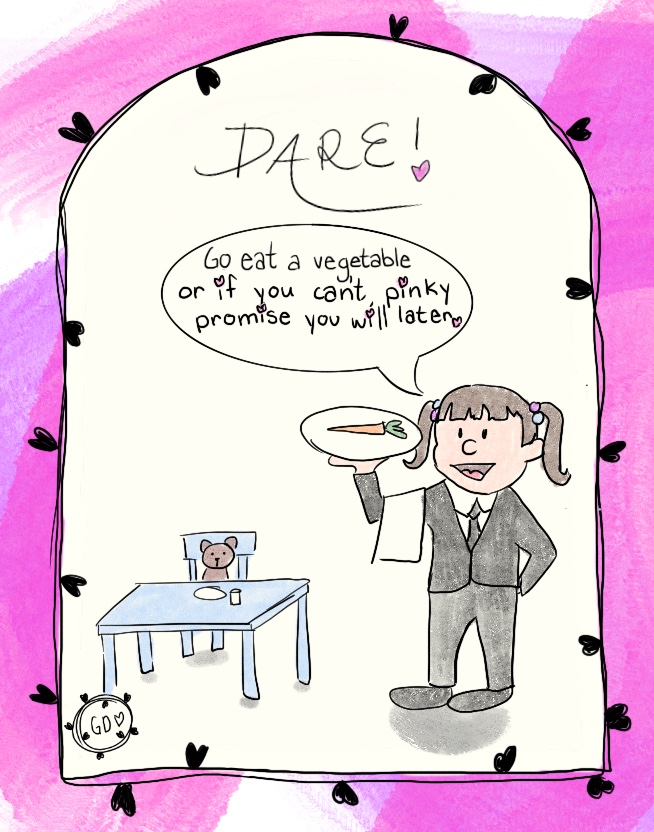 DARE!
Go eat a vegetable
or if you cant, pinky
promise you will later.
GD